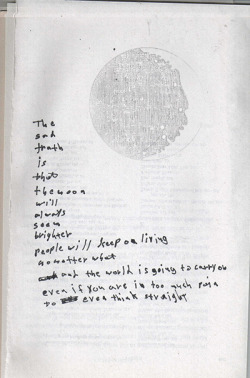 The
sad
truth
is
that
the moon
will
always
seem
brighter
people will keep on living
no matter what
and the world is going to carry on
even if you are in too much pain
to even think straight